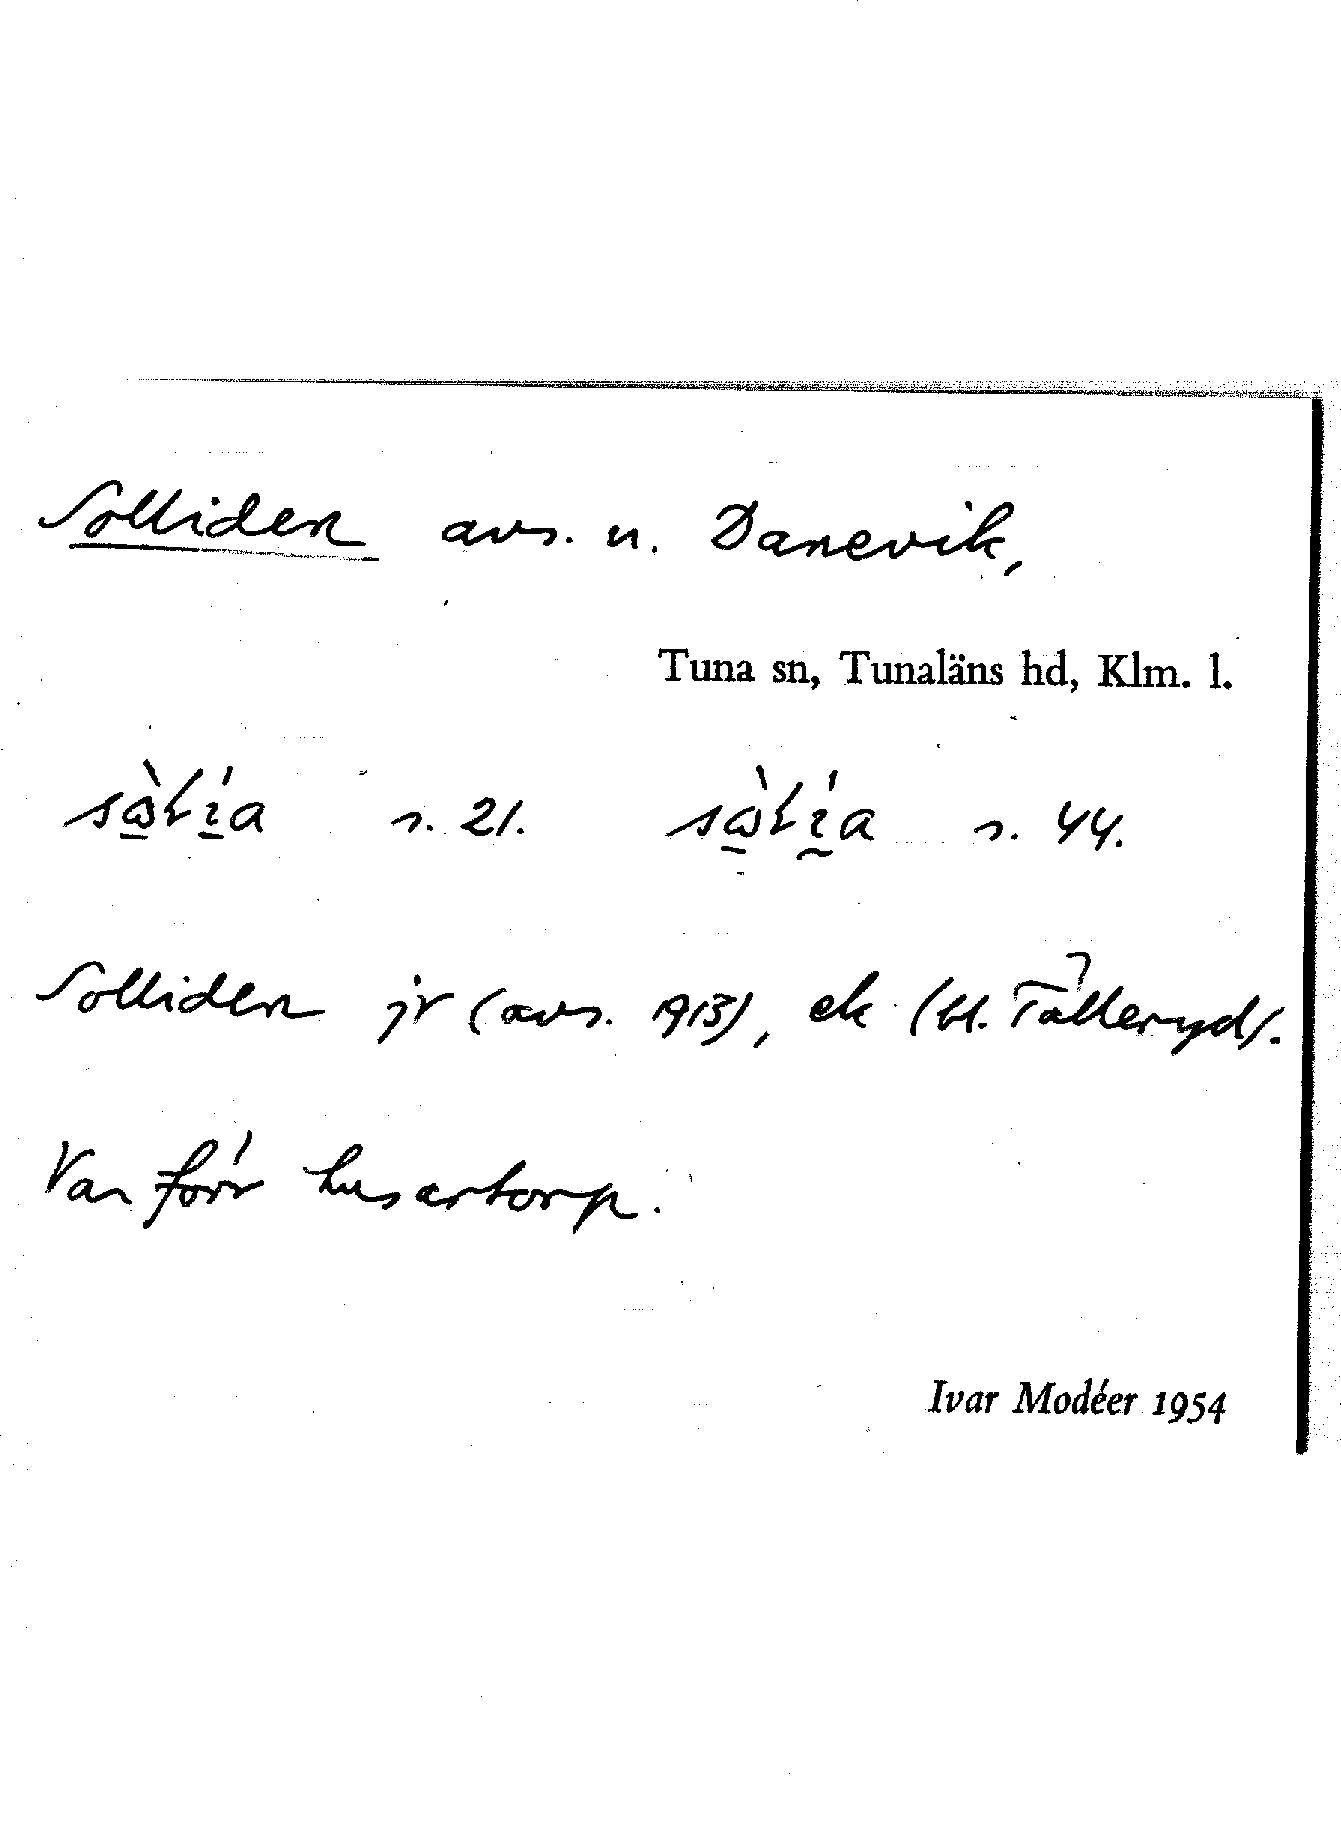 Solliden avs. u. Danevik,
Tuna sn, Tunaläns hd, Klm. l.
s. 21. s. 44.
Solliden jr (avs. 1913), ek (bl. Tålleryd).
Var förr husartorp.
Ivar Modéer 1954